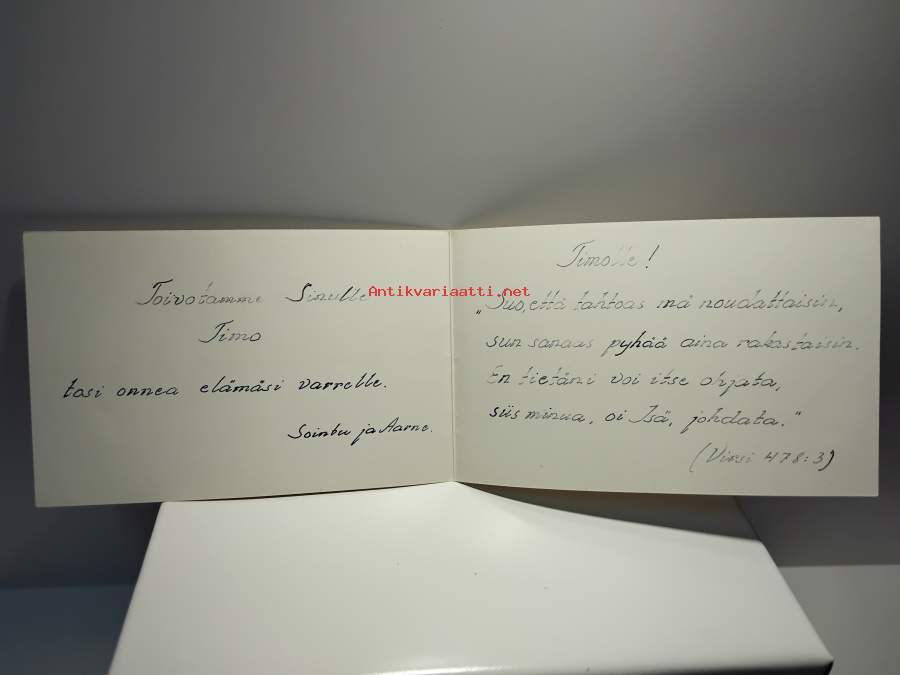 Toivotamme Sinulle
Timo
tosi onnea elämäsi varrelle.
Sointu ja Aarne.
Antikvariaatti.net
Timolle!
„Suo, että tahtoas mä noudattaisin,
sun sanaas pyhää aina rakastaisin.
En tietäni voi itse ohjata,
siis minua, oi Isä, johdata."
(Virsi 478:3)